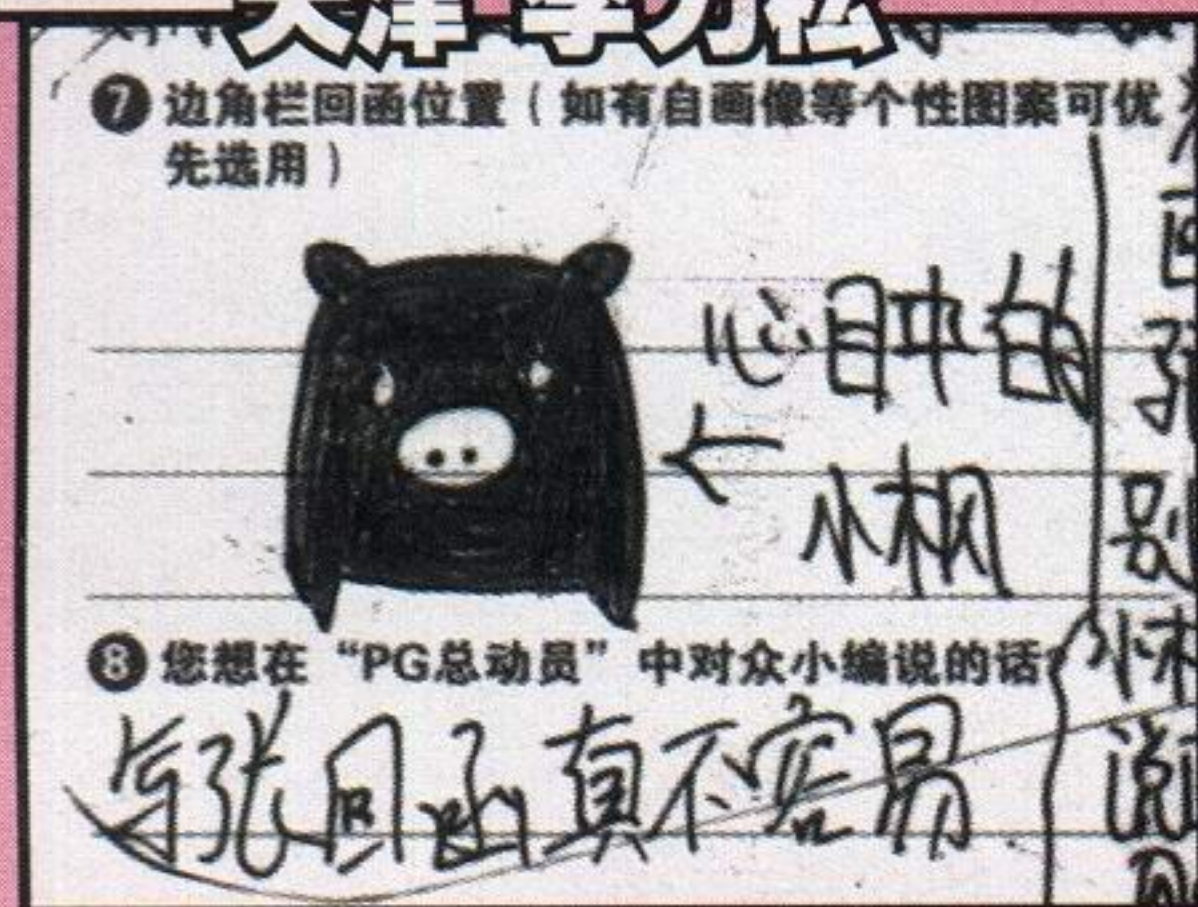 天津 李力松
❼ 边角栏回函位置（如有自画像等个性图案可优
先选用）
心目中的
小枫
❽ 您想在“PG总动员”中对众小编说的话
写张回函真不容易